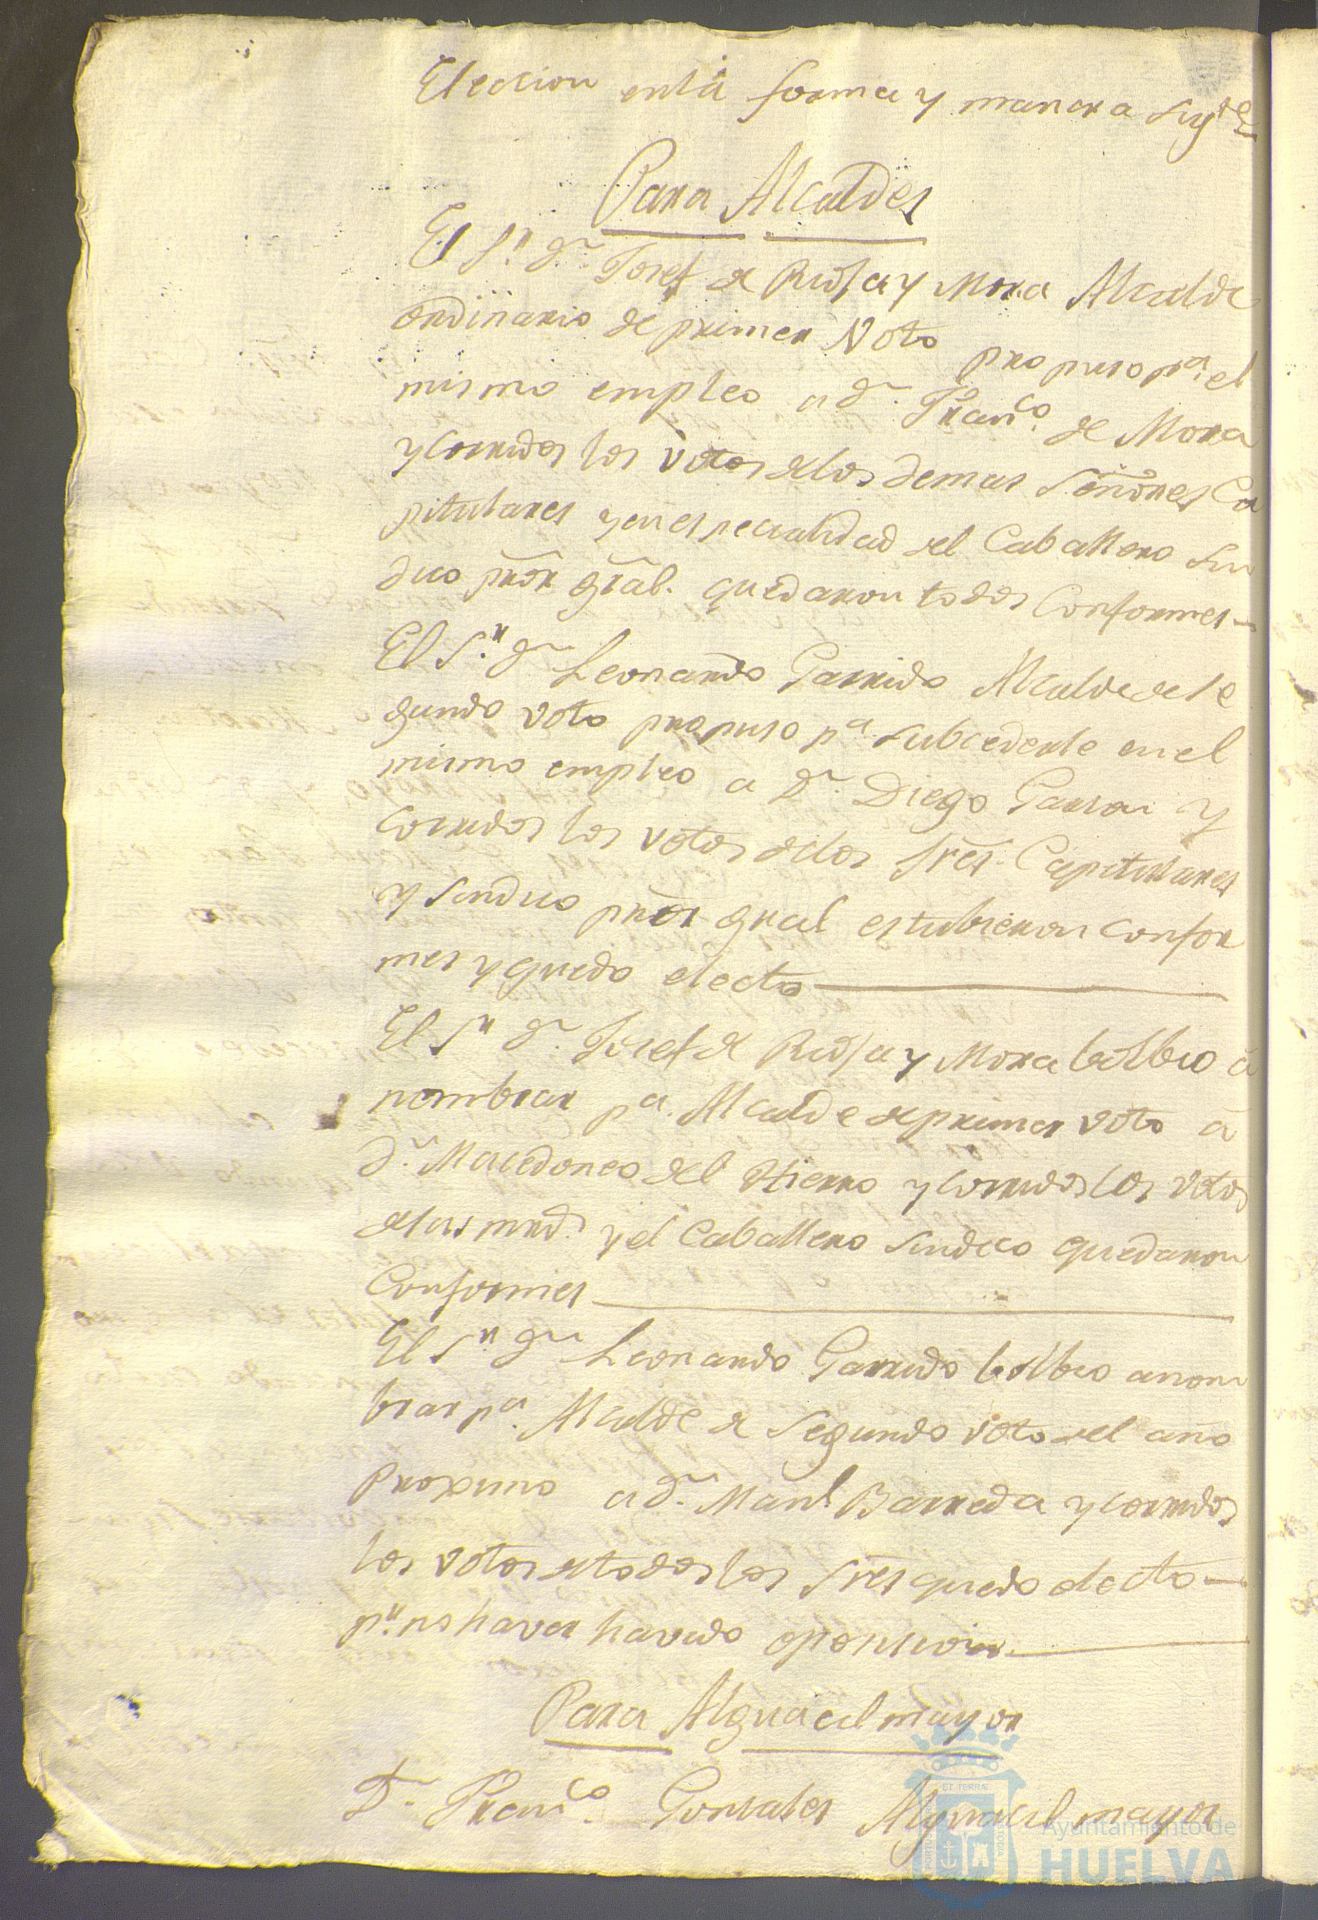 Eleccion enla forma y manera sigte
Para Alcaldes
El Sr. Dn. Josef de Rioja y Mora Alcalde
ordinario de primer Voto propuso pa. el
mismo empleo a Dn. Franco. de Mora
y corridos los votos delos demas Señores Ca
pitulares y en especialidad del Caballero Sin
dico pror gral. quedaron todos Conformes-
El Sr. Dn. Leonardo Garrido Alcalde de se
gundo voto propuso pa. subcederle en el
mismo empleo a Dn. Diego Garzon y
corridos los votos delos Sres. Capitulares
y sindico pror gral estubieron confor
mes y quedo electo
El Sr Dn. Josef de Rioja y Mora bolbio á
nombrar pa. Alcalde de primer voto á
Dn. Macedoneo del Hierro y corridos los votos
de sus mrds. y el Caballero sindico quedaron
Conformes
El Sr Dn Leonardo Garrido bolbio a nom
brar pa. Alcalde de segundo voto del año
proximo a Dn. Manl. Barreda y corridos
los votos de todos los Sres quedo electo-
pr. no haver havido oposicion
Para Alguacil mayor
Dn. Franco. Gonzales Alguacil mayor
Ayuntamiento de
HUELVA